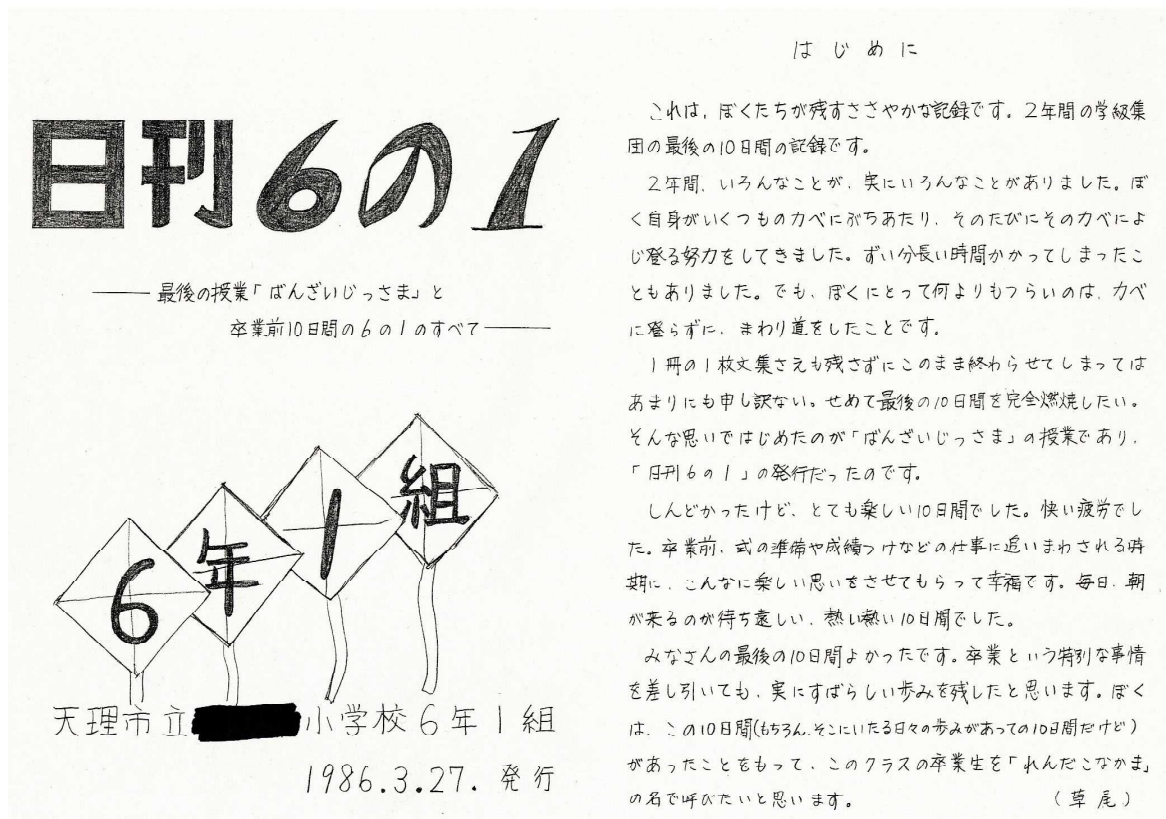 日刊6の1
―― 最後の授業「ばんざいじっさま」と
卒業前10日間の6の1のすべて ――
6年1組
天理市立 小学校6年1組
1986.3.27. 発行
はじめに
これは、ぼくたちが残すささやかな記録です。2年間の学級集
団の最後の10日間の記録です。
2年間、いろんなことが、実にいろんなことがありました。ぼ
く自身がいくつものカベにぶちあたり、そのたびにそのカベによ
じ登る努力をしてきました。ずい分長い時間かかってしまったこ
ともありました。でも、ぼくにとって何よりもつらいのは、カベ
に登らずに、まわり道をしたことです。
1冊の1枚文集さえも残さずにこのまま終わらせてしまっては
あまりにも申し訳ない。せめて最後の10日間を完全燃焼したい。
そんな思いではじめたのが「ばんざいじっさま」の授業であり、
「日刊6の1」の発行だったのです。
しんどかったけど、とても楽しい10日間でした。快い疲労でし
た。卒業前、式の準備や成績つけなどの仕事に追いまわされる時
期に、こんなに楽しい思いをさせてもらって幸福です。毎日、朝
が来るのが待ち遠しい、熱い熱い10日間でした。
みなさんの最後の10日間よかったです。卒業という特別な事情
を差し引いても、実にすばらしい歩みを残したと思います。ぼく
は、この10日間(もちろん、そこにいたる日々の歩みがあっての10日間だけど)
があったことをもって、このクラスの卒業生を「れんだこなかま」
の名で呼びたいと思います。 (草尾)